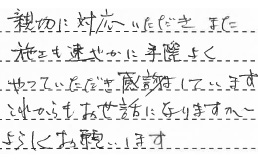 親切に対応いただき また
施工も速やかに手際よく
やっていただき感謝しています
これからもお世話になりますがー
よろしくお願いします